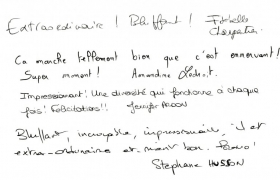 Extraordinaire ! Bluffant !
Ca marche tellement bien que c'est énervant !
Super moment ! Amandine
Impressionnant ! Une diversité qui fonctionne à chaque
fois ! Félicitations !! Jennifer
Bluffant, incroyable, impressionnant, et
extra-ordinaire et marrant bon. Bravo !
Stéphane HUSSON